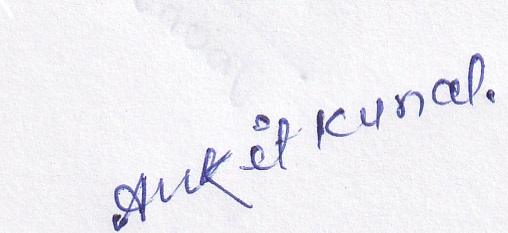 Ankit Kunal.